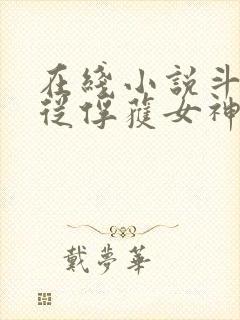 在綫小說斗
從俘獲女神
戴夢華